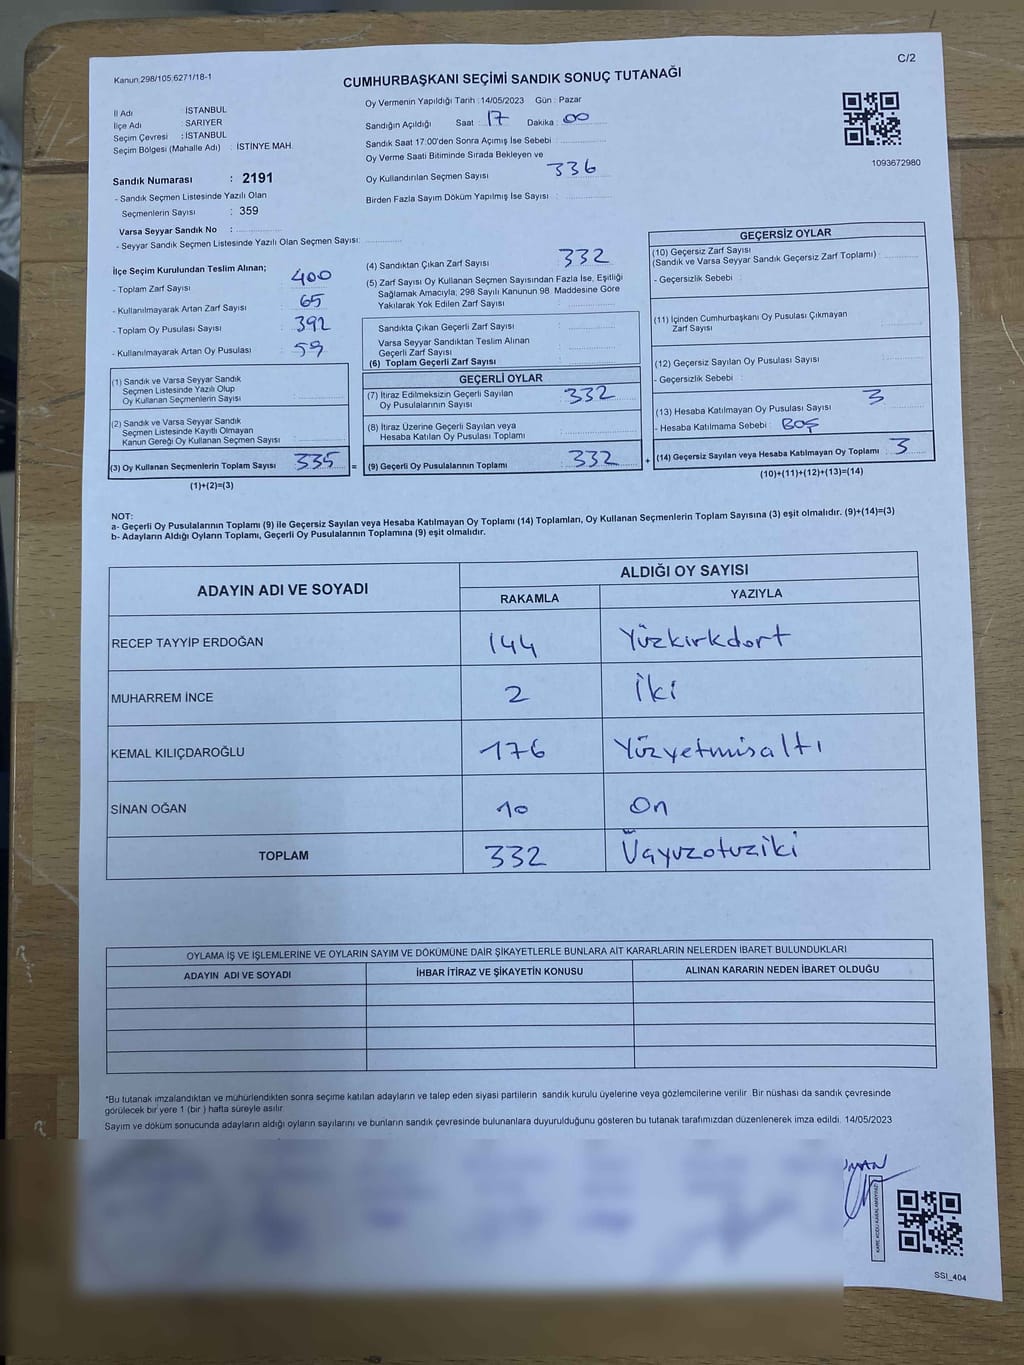 Kanun:298/105:6271/18-1
C/2
CUMHURBAŞKANI SEÇİMİ SANDIK SONUÇ TUTANAĞI
İl Adı İSTANBUL
İlçe Adı SARIYER
Seçim Çevresi : İSTANBUL
Seçim Bölgesi (Mahalle Adı) : İSTİNYE MAH.
Oy Vermenin Yapıldığı Tarih :14/05/2023 Gün : Pazar
Sandığın Açıldığı Saat : 17 Dakika : 00
Sandık Saat 17:00'den Sonra Açımış İse Sebebi :
Oy Verme Saati Bitiminde Sırada Bekleyen ve
Oy Kullandırılan Seçmen Sayısı 336
Birden Fazla Sayım Döküm Yapılmış İse Sayısı :
1093672980
Sandık Numarası : 2191
- Sandık Seçmen Listesinde Yazılı Olan
Seçmenlerin Sayısı : 359
Varsa Seyyar Sandık No :
- Seyyar Sandık Seçmen Listesinde Yazılı Olan Seçmen Sayısı:
İlçe Seçim Kurulundan Teslim Alınan;
- Toplam Zarf Sayısı : 400
- Kullanılmayarak Artan Zarf Sayısı : 65
- Toplam Oy Pusulası Sayısı : 392
- Kullanılmayarak Artan Oy Pusulası : 59
(1) Sandık ve Varsa Seyyar Sandık
Seçmen Listesinde Yazılı Olup
Oy Kullanan Seçmenlerin Sayısı :
(2) Sandık ve Varsa Seyyar Sandık
Seçmen Listesinde Kayıtlı Olmayan
Kanun Gereği Oy Kullanan Seçmen Sayısı :
(3) Oy Kullanan Seçmenlerin Toplam Sayısı : 335 =
(1)+(2)=(3)
(4) Sandıktan Çıkan Zarf Sayısı : 332
(5) Zarf Sayısı Oy Kullanan Seçmen Sayısından Fazla İse, Eşitliği
Sağlamak Amacıyla, 298 Sayılı Kanunun 98. Maddesine Göre
Yakılarak Yok Edilen Zarf Sayısı :
Sandıkta Çıkan Geçerli Zarf Sayısı :
Varsa Seyyar Sandıktan Teslim Alınan
Geçerli Zarf Sayısı :
(6) Toplam Geçerli Zarf Sayısı :
GEÇERLİ OYLAR
(7) İtiraz Edilmeksizin Geçerli Sayılan
Oy Pusulalarının Sayısı : 332
(8) İtiraz Üzerine Geçerli Sayılan veya
Hesaba Katılan Oy Pusulaları Toplamı :
(9) Geçerli Oy Pusulalarının Toplamı : 332 +
GEÇERSİZ OYLAR
(10) Geçersiz Zarf Sayısı
(Sandık ve Varsa Seyyar Sandık Geçersiz Zarf Toplamı) :
- Geçersizlik Sebebi :
(11) İçinden Cumhurbaşkanı Oy Pusulası Çıkmayan
Zarf Sayısı :
(12) Geçersiz Sayılan Oy Pusulası Sayısı :
- Geçersizlik Sebebi :
(13) Hesaba Katılmayan Oy Pusulası Sayısı : 3
- Hesaba Katılmama Sebebi : BOŞ
(14) Geçersiz Sayılan veya Hesaba Katılmayan Oy Toplamı : 3
(10)+(11)+(12)+(13)=(14)
NOT:
a- Geçerli Oy Pusulalarının Toplamı (9) ile Geçersiz Sayılan veya Hesaba Katılmayan Oy Toplamı (14) Toplamları, Oy Kullanan Seçmenlerin Toplam Sayısına (3) eşit olmalıdır. (9)+(14)=(3)
b- Adayların Aldığı Oyların Toplamı, Geçerli Oy Pusulalarının Toplamına (9) eşit olmalıdır.
ADAYIN ADI VE SOYADI ALDIĞI OY SAYISI
RAKAMLA YAZIYLA
RECEP TAYYİP ERDOĞAN 144 Yüzkırkdort
MUHARREM İNCE 2 İki
KEMAL KILIÇDAROĞLU 176 Yüzyetmisaltı
SİNAN OĞAN 10 On
TOPLAM 332 Üçyuzotuziki
OYLAMA İŞ VE İŞLEMLERİNE VE OYLARIN SAYIM VE DÖKÜMÜNE DAİR ŞİKAYETLERLE BUNLARA AİT KARARLARIN NELERDEN İBARET BULUNDUKLARI
ADAYIN ADI VE SOYADI İHBAR İTİRAZ VE ŞİKAYETİN KONUSU ALINAN KARARIN NEDEN İBARET OLDUĞU
*Bu tutanak imzalandıktan ve mühürlendikten sonra seçime katılan adayların ve talep eden siyasi partilerin sandık kurulu üyelerine veya gözlemcilerine verilir. Bir nüshası da sandık çevresinde
görülecek bir yere 1 (bir) hafta süreyle asılır.
Sayım ve döküm sonucunda adayların aldığı oyların sayılarını ve bunların sandık çevresinde bulunanlara duyurulduğunu gösteren bu tutanak tarafımızdan düzenlenerek imza edildi. 14/05/2023
KARE KODU KARALAMAYINIZ!
SSI_404